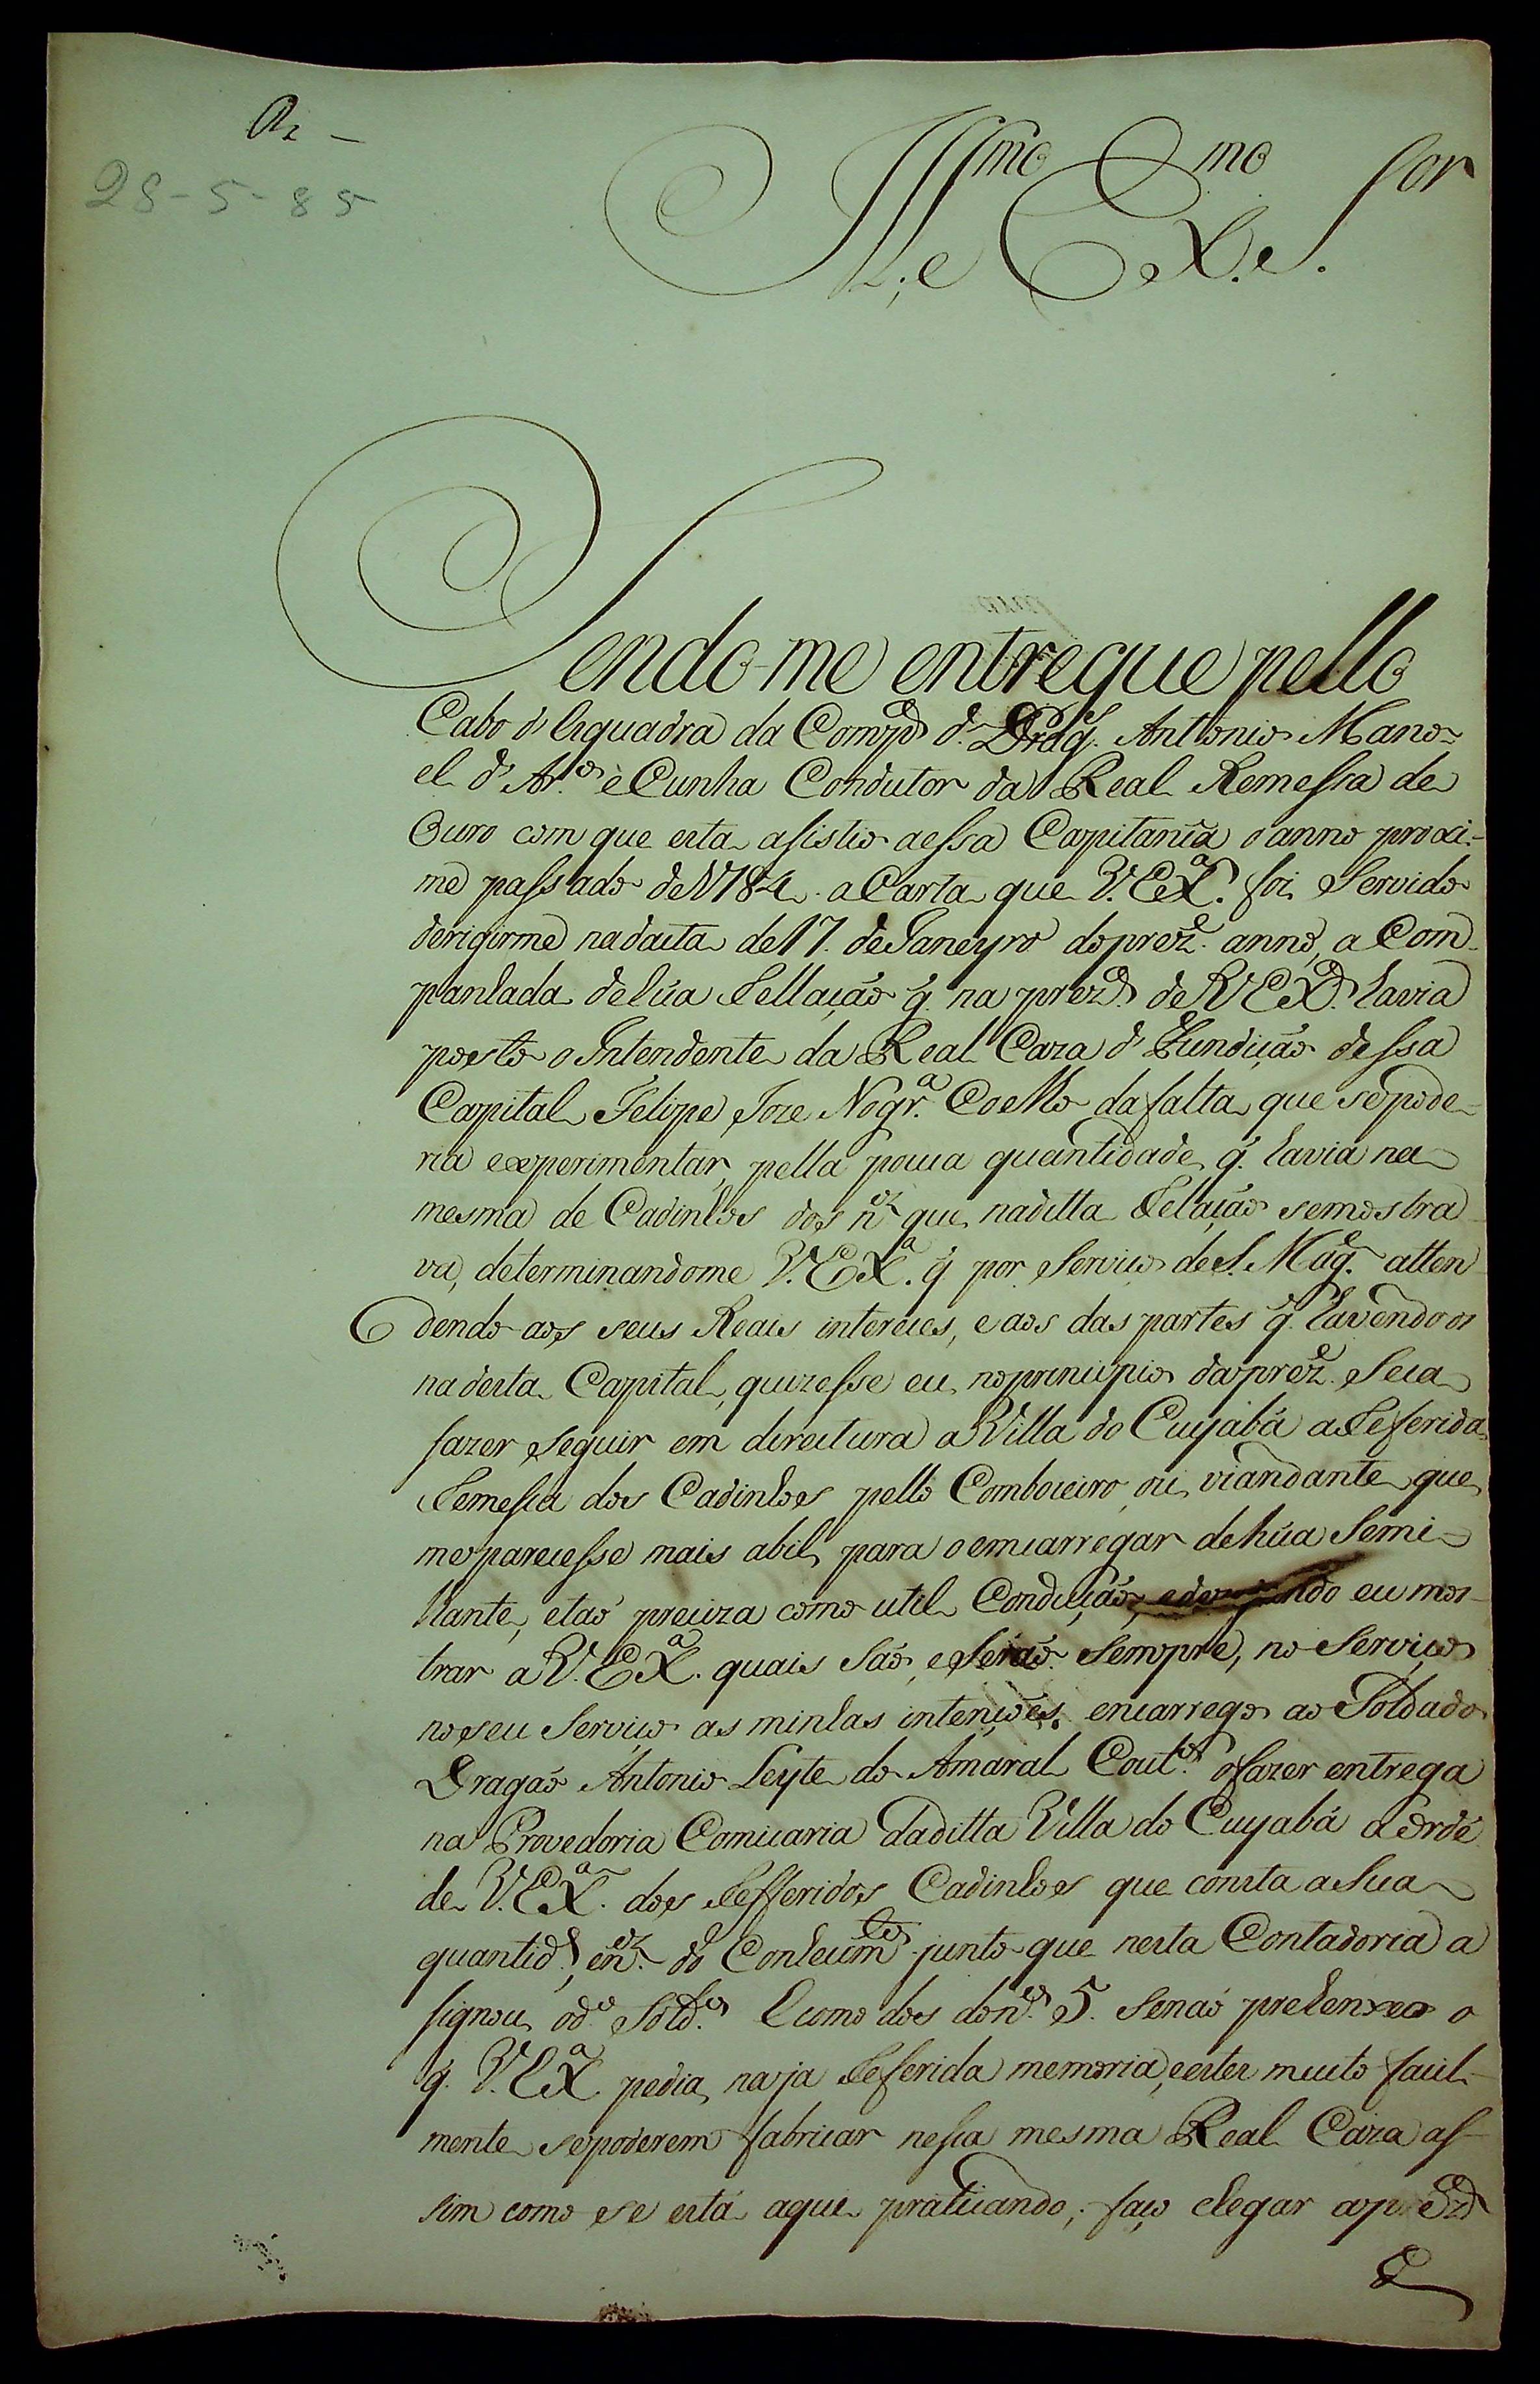 28-5-85
Ill.mo e Ex.mo S.or
Sendo-me entregue pello
Cabo d' Esquadra da Comp.a d. Drag.es Antonio Mano-
el d' Ar.o e Cunha Condutor da Real Remessa de
Ouro com que esta asistio a essa Capitania o anno proxi-
mo passado de 1784. a Carta que V. Ex.a foi Servido
derigirme na data de 17. de Janeyro do prez.e anno, a Com
panhada de hũa Rellação q̃. na prez.a de V. Ex.a havia
posto o Intendente da Real Caza d' Fundição dessa
Capital Felipe Joze Nogr.a Coelho da falta, que se pode-
ria experimentar, pella pouca quantidade q̃. havia na
mesma de Cadinhos dos n.os que na ditta Relação se mostra
va, determinandome V. Ex.a q̃. por Serviço de S. Mag.e atten
dendo aos seus Reais intereces, e aos das partes q̃. havendo os
nadesta Capital, quizesse eu no principio da prez.e Seca
fazer seguir em direitura a Villa do Cuyabá a Referida
Remessa dos Cadinhos pello Comboieiro ou viandante que
me parecesse mais abil para o emcarregar de hũa Semi-
lhante, e tão preciza como util Condução, e dezejando eu mos-
trar a V. Ex.a quais São, e Serão Sempre, no Serviço
no seu Serviço as minhas intenções, encarrego ao Soldado
Dragão Antonio Leyte do Amaral Cout.o o fazer entrega
na Provedoria Comicaria da ditta Villa do Cuyabá a ordẽ
de V. Ex.a dos Refferidos Cadinhos que consta a Sua
quantid.e, e n.os do Conhecim.to junto que nesta Contadoria a
signou o d.o Sold.o E como dos do n.o 5. Senão prehenxeo o
q̃. V. Ex.a pedia, na ja Referida memoria, e estes muito facil-
mente se poderem fabricar nessa mesma Real Caza as-
sim como se está aqui praticando, faço chegar a prez.a